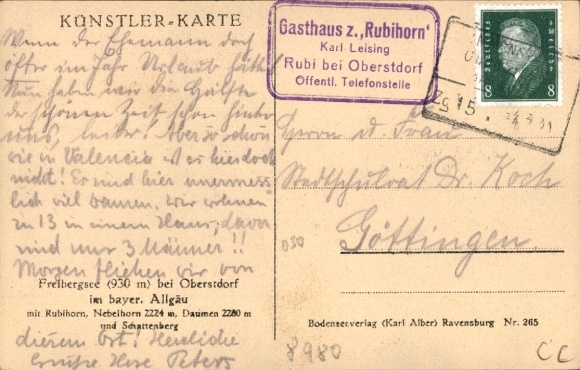 KÜNSTLER-KARTE
Wenn der Ehemann doch
öfter im Jahr Urlaub hätte!
Nun haben wir die Hälfte
der schönen Zeit schon hinter
uns, leider. Aber so schön
wie in Valencia ist es hier doch
nicht! Es sind hier unermess-
lich viel Damen. Wir wohnen
zu 13 in einem Haus, davon
sind nur 3 Männer!!
Morgen fliehen wir von
Freibergsee (930 m) bei Oberstdorf
im bayer. Allgäu
mit Rubihorn, Nebelhorn 2224 m, Daumen 2280 m
und Schattenberg
diesem Ort! Herzliche
Grüße Peters
Gasthaus z. „Rubihorn"
Karl Leising
Rubi bei Oberstdorf
Öffentl. Telefonstelle
Deutsches Reich
8 8
Herrn u. Frau
Stadtschulrat Dr. Koch
Göttingen.
050
Bodenseeverlag (Karl Alber) Ravensburg Nr. 265
8980
CC